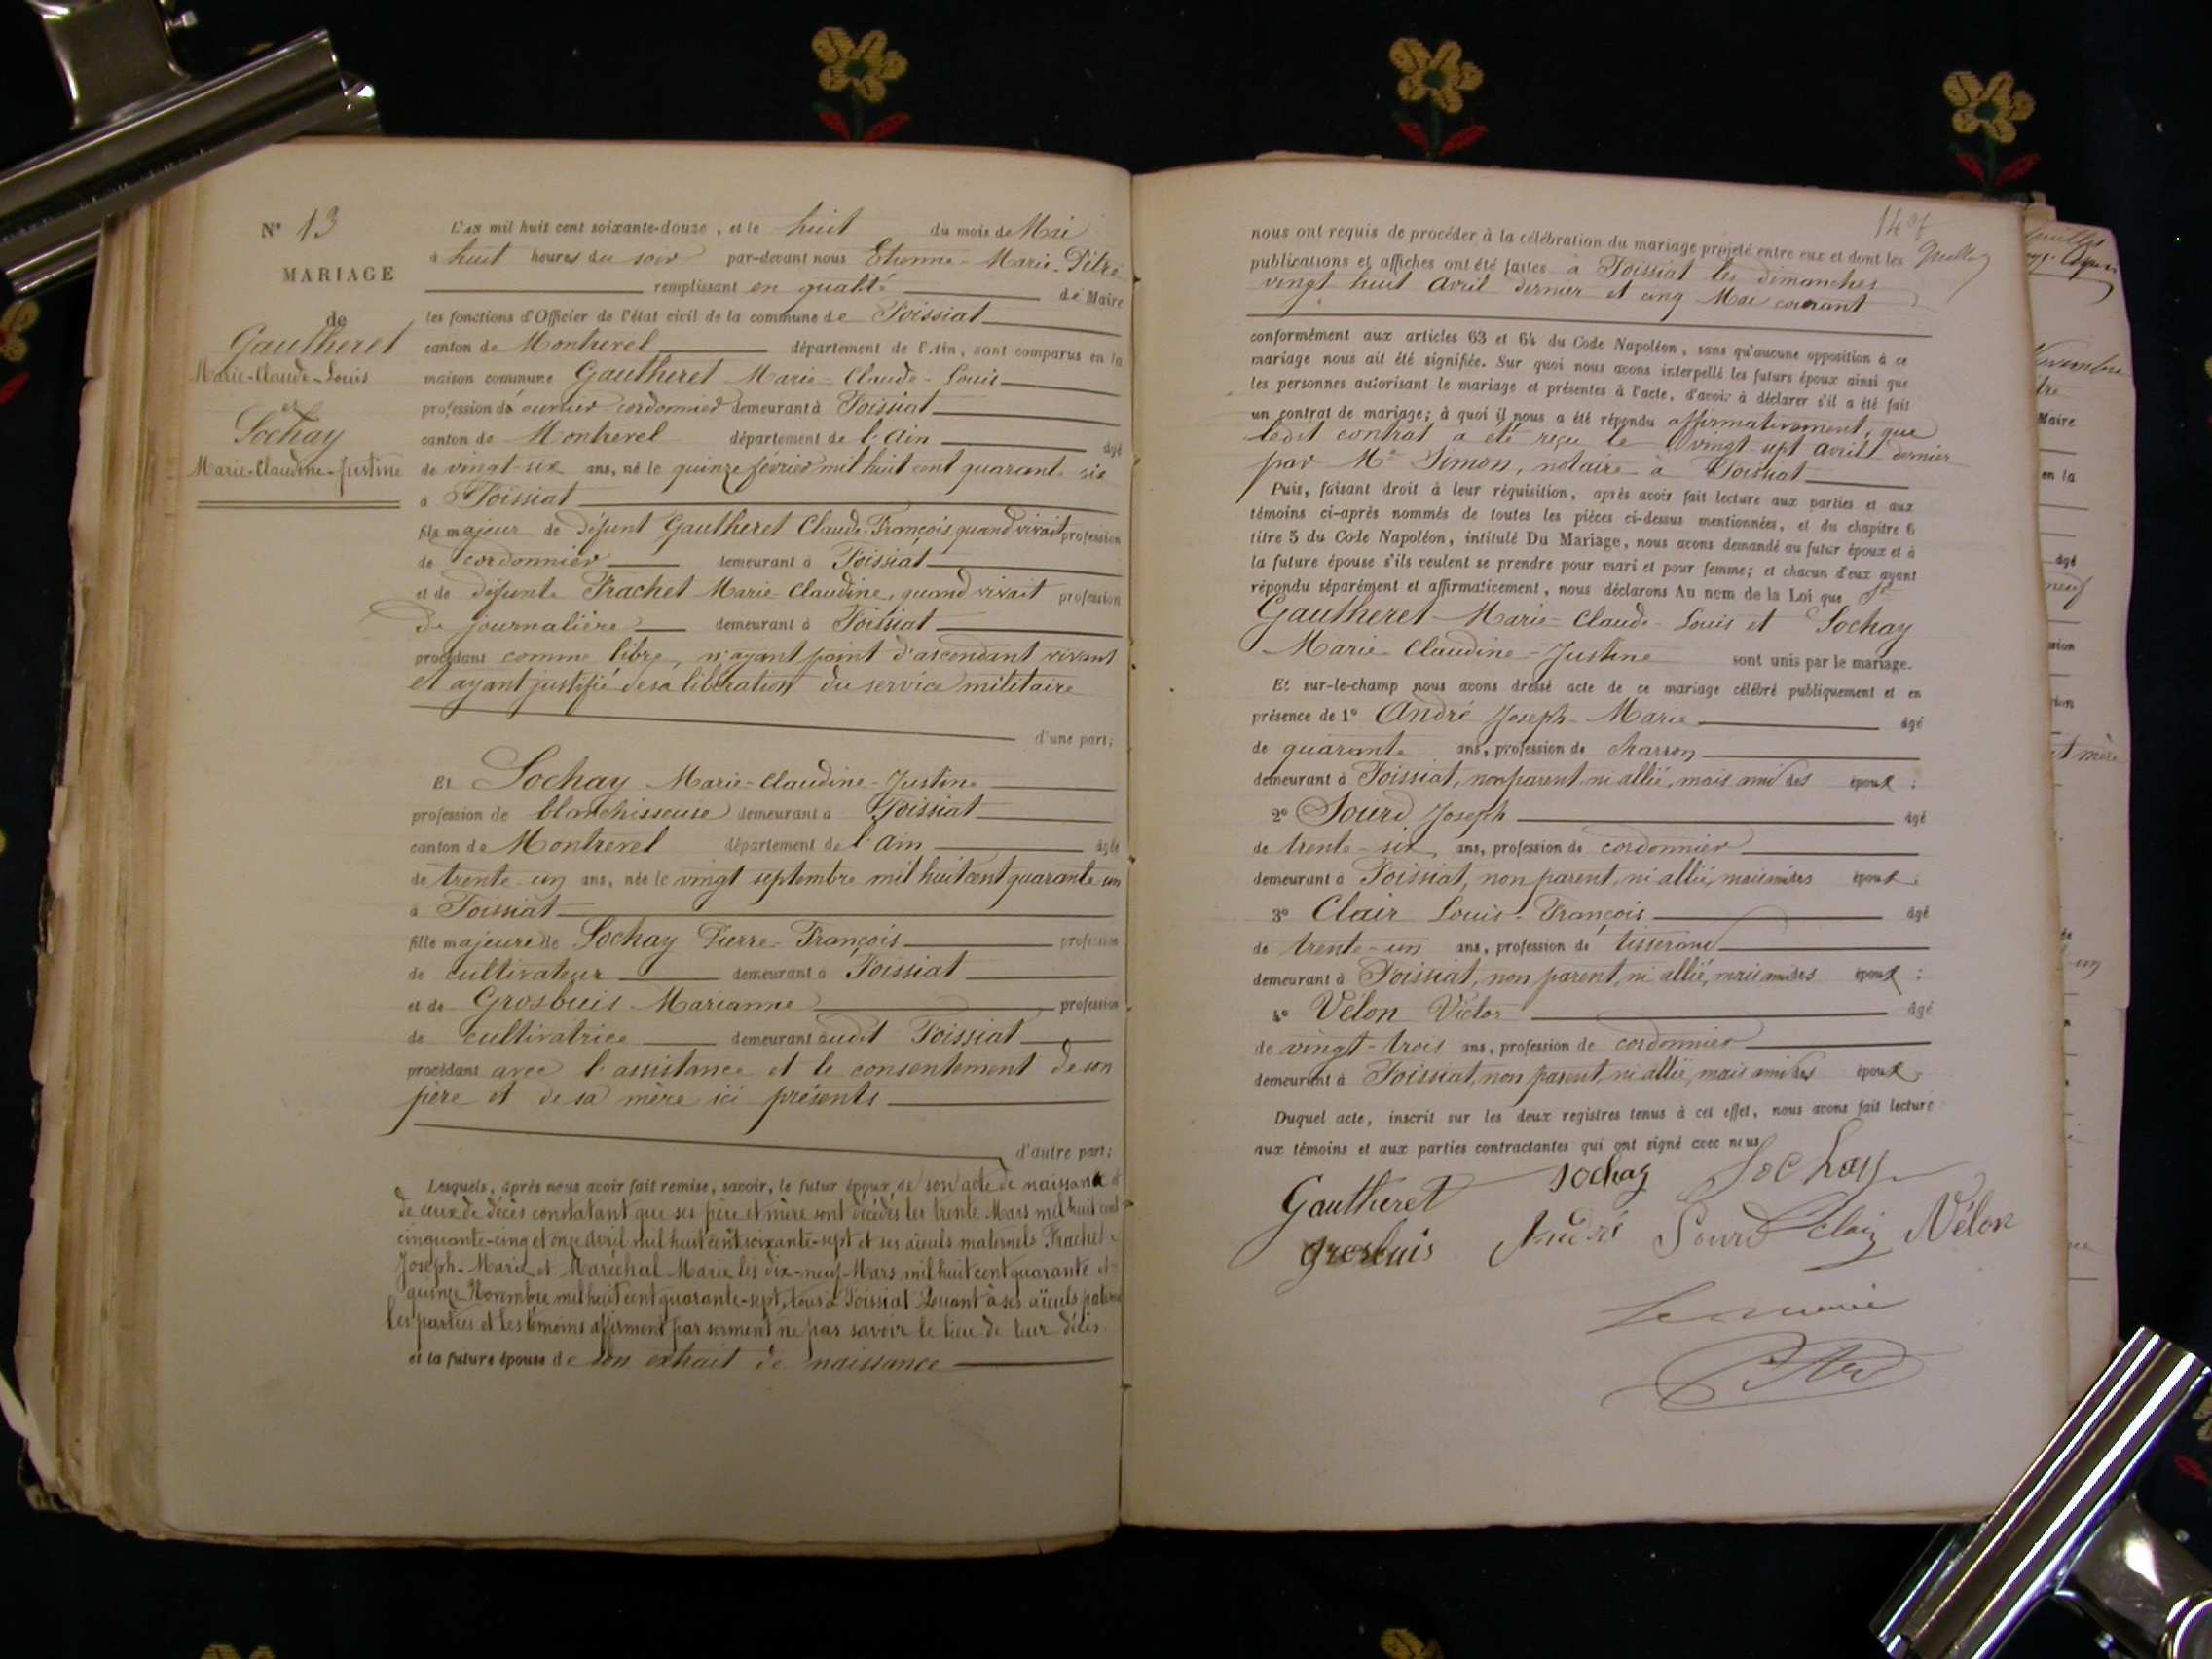 N° 13
MARIAGE
de
Gautheret
Marie-Claude-Louis
et
Sochay
Marie-Claudine-Justine
L'AN mil huit cent soixante-douze, et le huit du mois de Mai
à huit heures du soir par-devant nous Etienne-Marie Pitre
remplissant en qualité de Maire
les fonctions d'Officier de l'état civil de la commune de Foissiat
canton de Montrevel département de l'Ain, sont comparus en la
maison commune Gautheret Marie-Claude-Louis
profession d'ouvrier cordonnier demeurant à Foissiat
canton de Montrevel département de l'Ain âgé
de vingt-six ans, né le quinze février mil huit cent quarante-six
à Foissiat
fils majeur de défunt Gautheret Claude-François, quand vivait profession
de cordonnier demeurant à Foissiat
et de défunte Frachet Marie-Claudine, quand vivait profession
de journalière demeurant à Foissiat
procédant comme libre, n'ayant point d'ascendant vivant
et ayant justifié de sa libération du service militaire
d'une part;
Et Sochay Marie-Claudine-Justine
profession de blanchisseuse demeurant à Foissiat
canton de Montrevel département de l'Ain âgée
de trente-un ans, née le vingt septembre mil huit cent quarante-un
à Foissiat
fille majeure de Sochay Pierre-François profession
de cultivateur demeurant à Foissiat
et de Grosbuis Marianne profession
de cultivatrice demeurant audit Foissiat
procédant avec l'assistance et le consentement de son
père et de sa mère ici présents
d'autre part;
Lesquels, après nous avoir fait remise, savoir, le futur époux, de son acte de naissance et
de ceux de décès constatant que ses père et mère sont décédés les trente Mars mil huit cent
cinquante-cinq et onze avril mil huit cent soixante-sept et ses aïeuls maternels Frachet
Joseph-Marie et Maréchal Marie les dix-neuf Mars mil huit cent quarante et
quinze Novembre mil huit cent quarante-sept, tous à Foissiat Quant à ses aïeuls paternels
les parties et les témoins affirment par serment ne pas savoir le lieu de leur décès.
et la future épouse de son extrait de naissance
nous ont requis de procéder à la célébration du mariage projeté entre eux et dont les
publications et affiches ont été faites à Foissiat les dimanches
vingt huit Avril dernier et cinq Mai courant
conformément aux articles 63 et 64 du Code Napoléon, sans qu'aucune opposition à ce
mariage nous ait été signifiée. Sur quoi nous avons interpellé les futurs époux ainsi que
les personnes autorisant le mariage et présentes à l'acte, d'avoir à déclarer s'il a été fait
un contrat de mariage; à quoi il nous a été répondu affirmativement, que
ledit contrat a été reçu le vingt-sept avril dernier
par Me Simon, notaire à Foissiat
Puis, faisant droit à leur réquisition, après avoir fait lecture aux parties et aux
témoins ci-après nommés de toutes les pièces ci-dessus mentionnées, et du chapitre 6
titre 5 du Code Napoléon, intitulé Du Mariage, nous avons demandé au futur époux et à
la future épouse s'ils veulent se prendre pour mari et pour femme; et chacun d'eux ayant
répondu séparément et affirmativement, nous déclarons Au nom de la Loi que
Gautheret Marie-Claude-Louis et Sochay
Marie-Claudine-Justine sont unis par le mariage.
Et sur-le-champ nous avons dressé acte de ce mariage célébré publiquement et en
présence de 1° André Joseph-Marie âgé
de quarante ans, profession de charron
demeurant à Foissiat, non parent ni allié, mais ami des époux;
2° Sourd Joseph âgé
de trente-six ans, profession de cordonnier
demeurant à Foissiat, non parent, ni allié, mais ami des époux;
3° Clair Louis-François âgé
de trente-un ans, profession de tisserand
demeurant à Foissiat, non parent, ni allié, mais ami des époux;
4° Vélon Victor âgé
de vingt-trois ans, profession de cordonnier
demeurant à Foissiat, non parent, ni allié, mais ami des époux.
Duquel acte, inscrit sur les deux registres tenus à cet effet, nous avons fait lecture
aux témoins et aux parties contractantes qui ont signé avec nous
Gautheret Sochay Sochay
Grosbuis André Sourd Clair Vélon
Le maire
Maire
en la
âgé